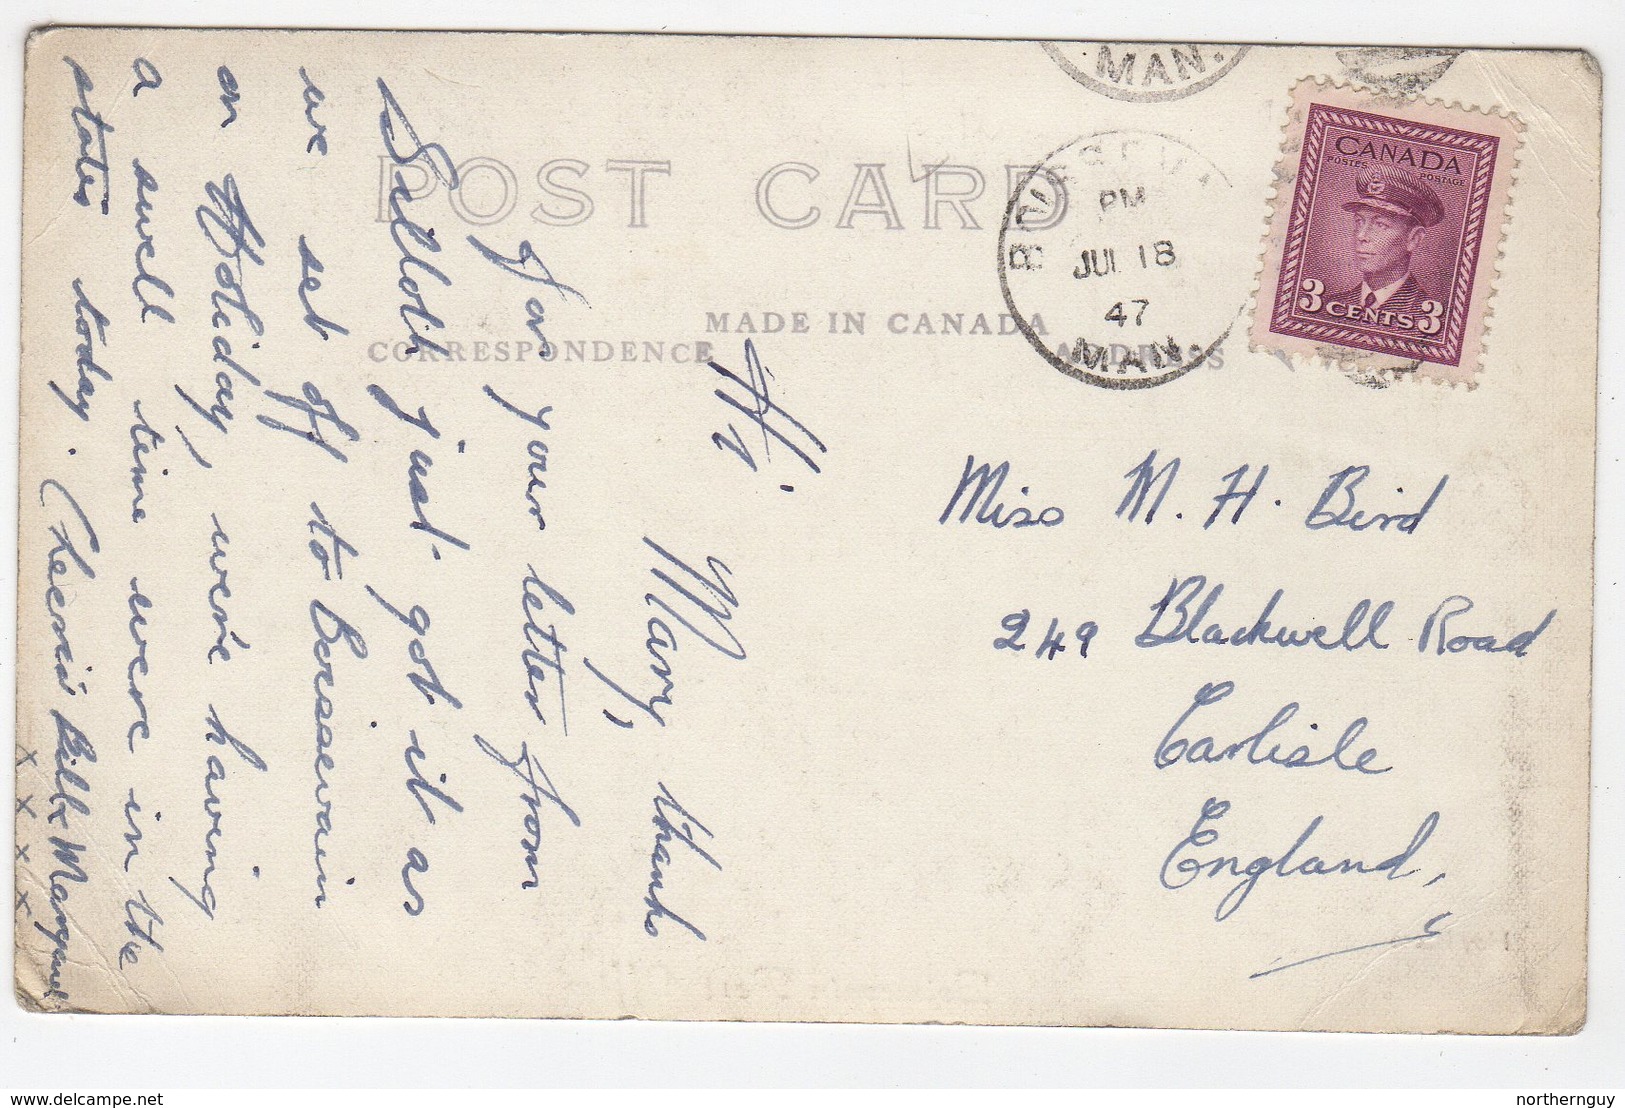 MAN.
POST CARD
BOISSEVAIN
PM
JUL 18
47
MAN.
CANADA
POSTES POSTAGE
3 CENTS 3
MADE IN CANADA
CORRESPONDENCE
ADDRESS
Hi.
Mary, thanks
for your letter from
Silloth just got it as
we set off to Boissevain
on Holiday, were having
a swell time were in the
states today. Cheerio Bill & Margaret
x x x x
Miss M. H. Bird
249 Blackwell Road
Carlisle
England,
delcampe.net
northernguy